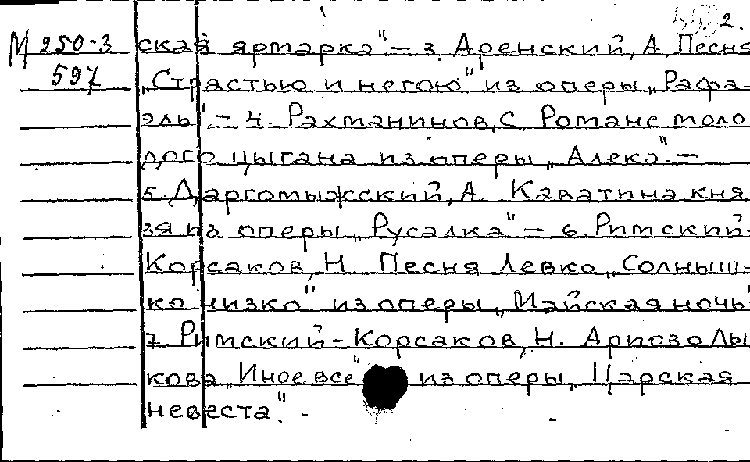 2.
М 250-3 ская ярмарка" – 3. Аренский, А. Песня
597 „Страстью и негою" из оперы „Рафа-
эль". – 4. Рахманинов, С. Романс моло-
дого цыгана из оперы „Алеко". –
5. Даргомыжский, А. Каватина кня-
зя из оперы „Русалка" – 6. Римский-
Корсаков, Н. Песня Левко „Солныш-
ко низко" из оперы „Майская ночь"
7. Римский-Корсаков, Н. Ариозо Лы-
кова „Иное все" из оперы „Царская
невеста". –